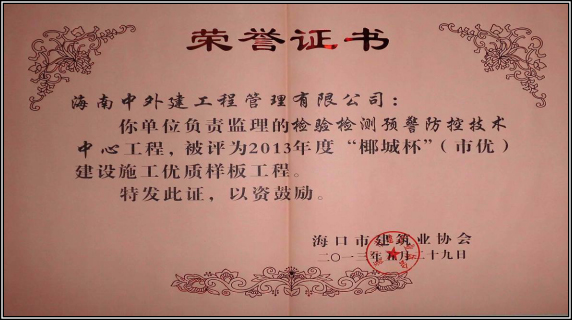 荣誉证书
海南中外建工程管理有限公司：
你单位负责监理的检验检测预警防控技术
中心工程，被评为2013年度“椰城杯”（市优）
建设施工优质样板工程。
特发此证，以资鼓励。
海口市建筑业协会
二〇一三年 月二十九日